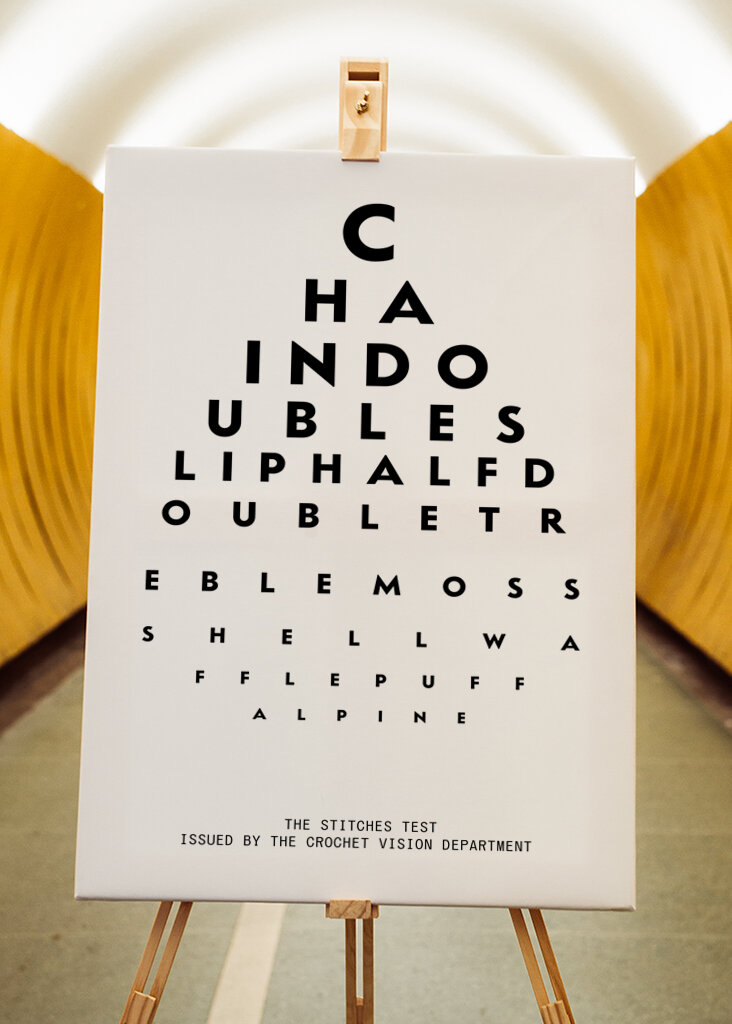 C
HA
INDO
UBLES
LIPHALFD
OUBLETR
EBLEMOSS
SHELLWA
FFLEPUFF
ALPINE
THE STITCHES TEST
ISSUED BY THE CROCHET VISION DEPARTMENT